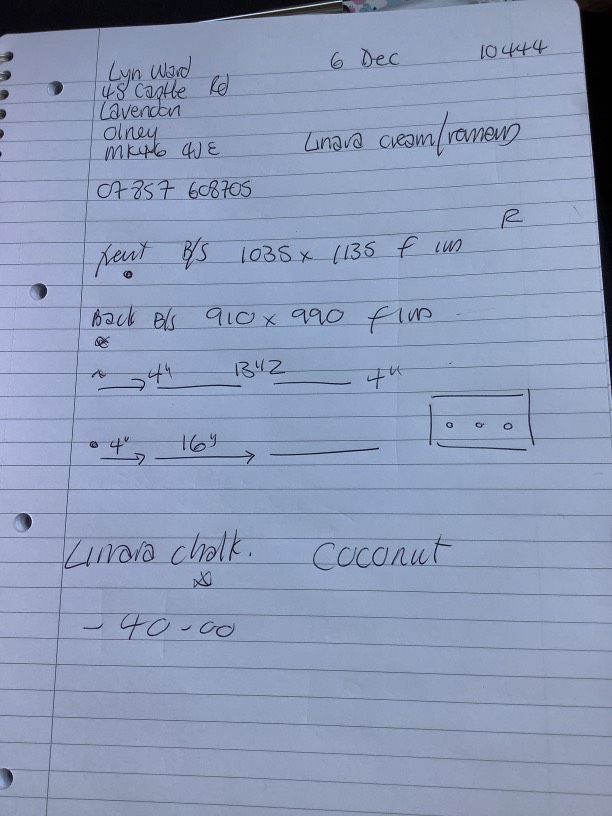 Lyn Ward 6 Dec 10444
48 Castle Rd
Lavendon
Olney
MK46 4JE Linara cream/
07857 608705
R
front B/S 1035 x 1135 f
Back B/S 910 x 990 f
4" 13"1/2 4"
4" 16"
Linara chalk. Coconut
- 40-00